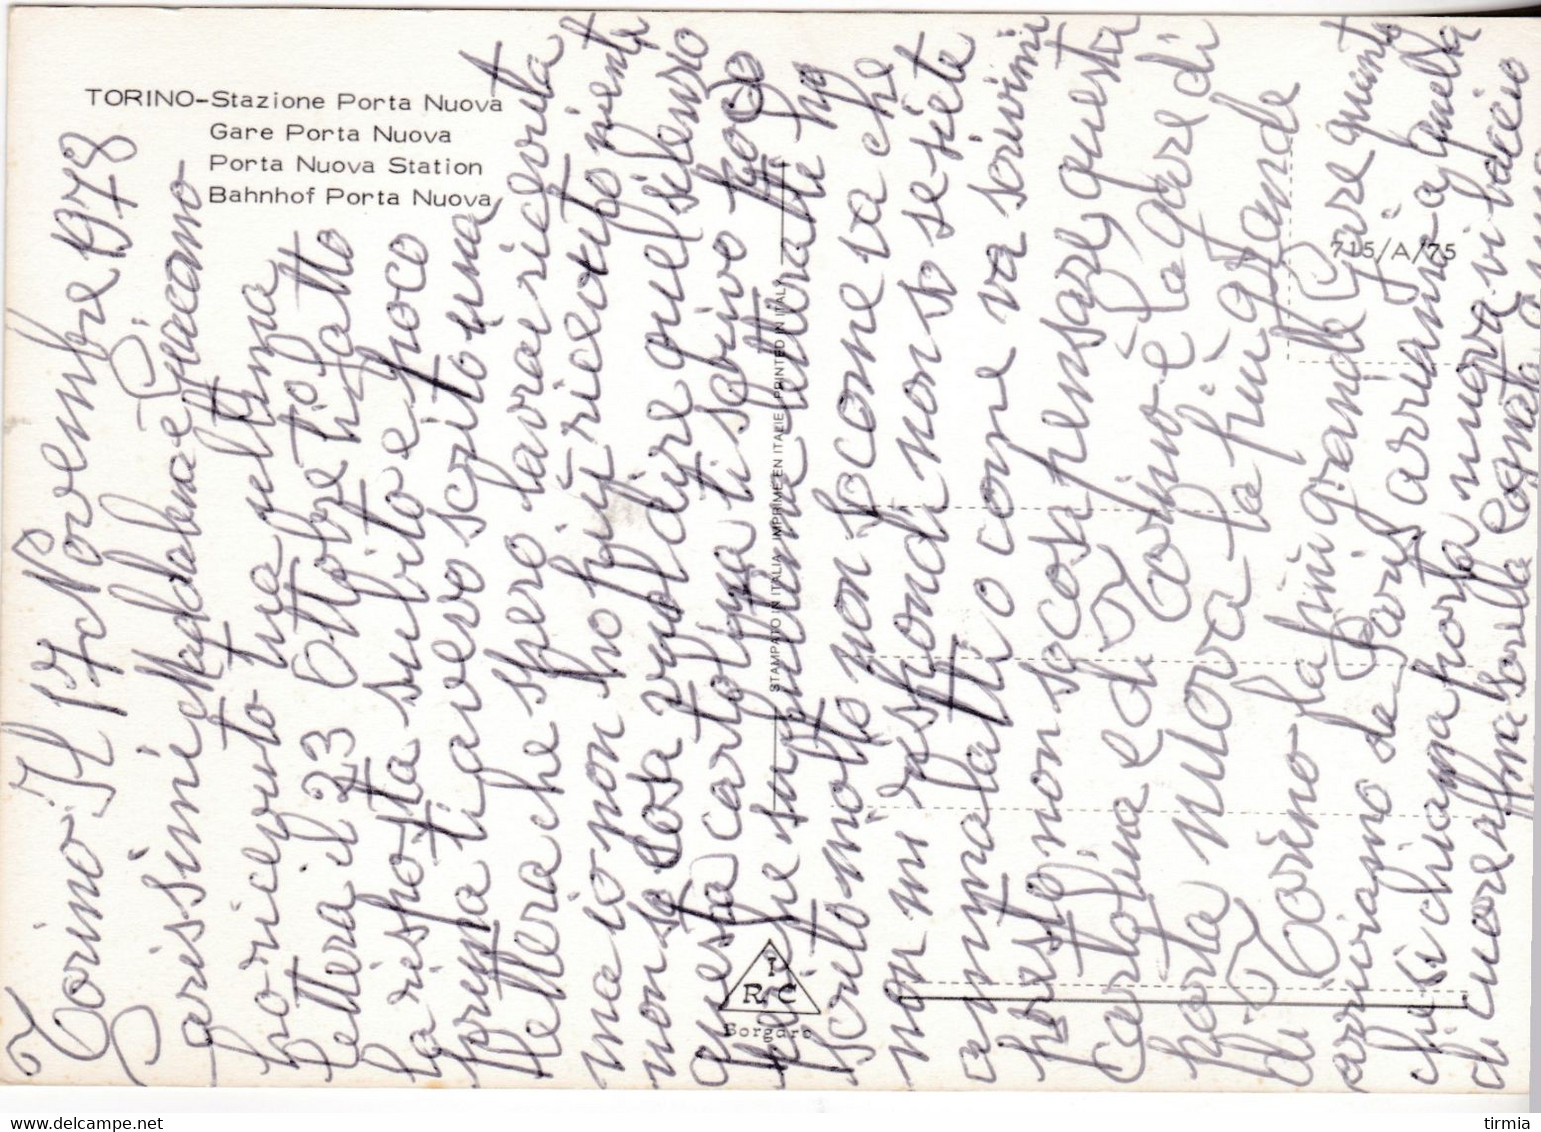 TORINO-Stazione Porta Nuova
Gare Porta Nuova
Porta Nuova Station
Bahnhof Porta Nuova
715/A/75
STAMPATO IN ITALIA IMPRIME EN ITALIE PRINTED IN ITALY
I
R C
Borgaro
Torino Il 17 Novembre 1978
Carissimi Magdalena e Giacomo
ho ricevuto tua
lettera il 23 Ottobre ti ho fatto
la risposta subito e poco
prima ti avevo scrito una
lettera che spero lavrai ricevuta
ma io non ho piu riceouto niente
non so cosa vuol dire quel silenzio
questa cartolina ti scrivo poco
perche su lultima lettera te ho
scrito molto non so come va che
non mi respondi non so se siete
ammalatti o come va scrivimi
presto non so cosa pensare questa
Cartolina e di Torino è la gare di
porta nuova la piu grande
di Torino la piu grande Gare quento
arriviamo da Paris arriviamo a quella
che si chiama porta nuova vi bacio
di cuore affma sorella Cognata